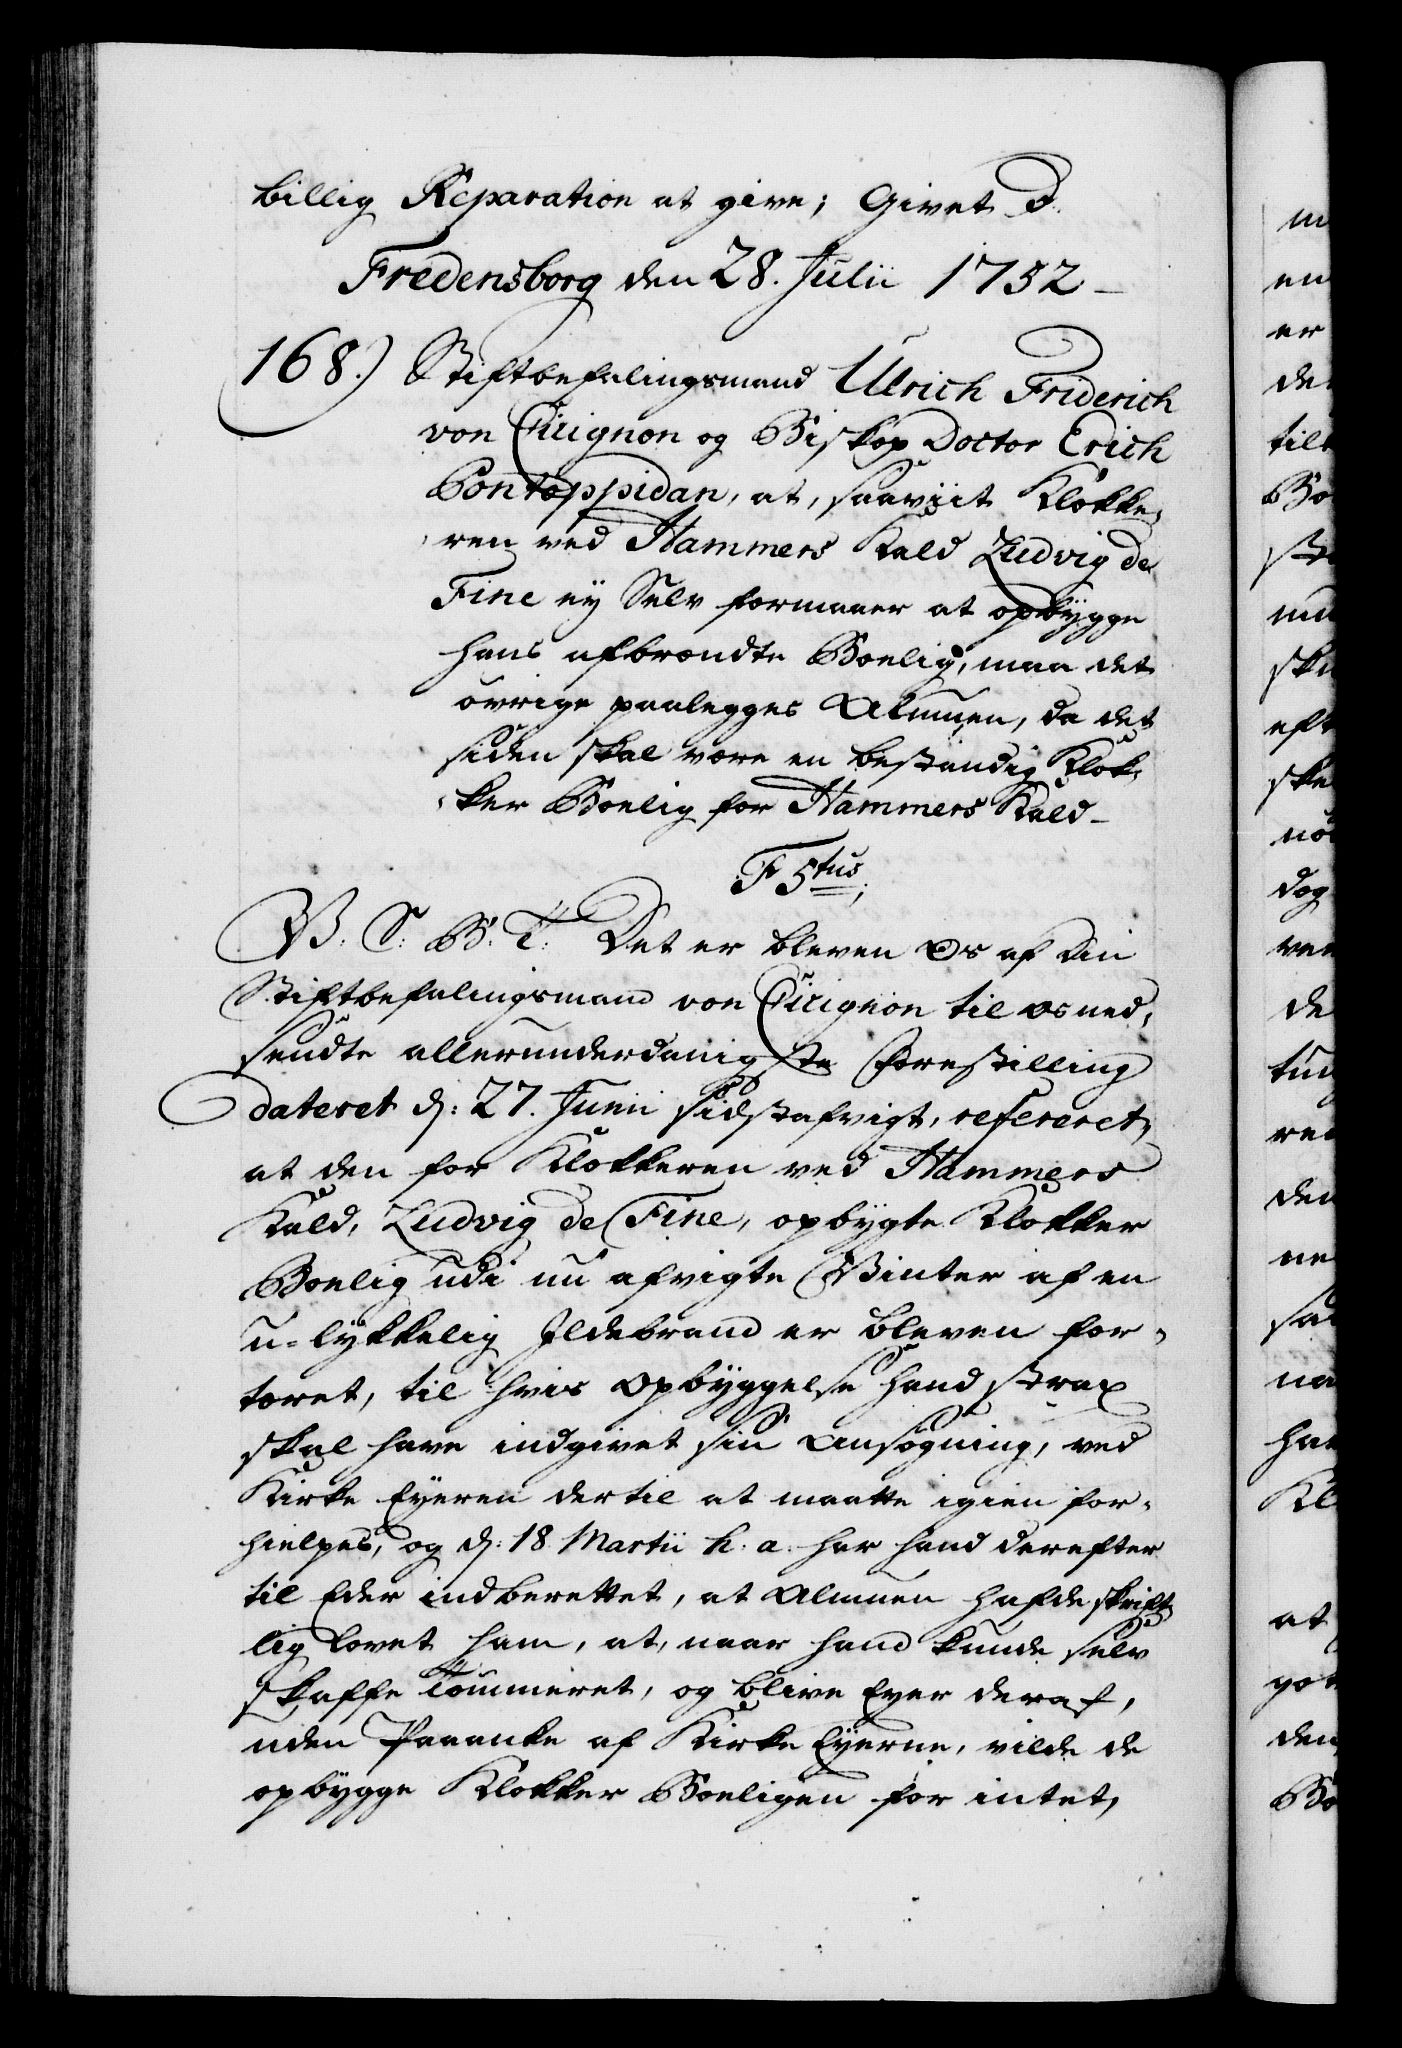 billig Reparation at give; Givet D.
Fredensborg den 28. Julii 1752
168.) Stiftbefalingsmand Ulrich Friderich
von Cicignon og Biskop Doctor Erich
Pontoppidan, at, saaviit Klokke-
ren ved Hammers Kald Ludvig de
Fine ey Selv formaaer at opbygge
hans afbrændte Boelig, maa det
øvrige paalegges Almuen, da det
siden skal være en bestandig Klok-
ker Boelig for Hammers Kald
F 5tus
V. S. G. T. Det er bleven Os af Din
Stiftbefalingsmand von Cicignon til os ned-
sendte allerunderdanigste Forestilling
dateret d: 27. Junii sidstafvigt, refereret,
at den for Klokkeren ved Hammers
Kald, Ludvig de Fine, opbygte Klokker
Boelig udi nu afvigte Vinter af en
u-lykkelig Ildebrand er bleven for-
tæret, til hvis Opbyggelse hand strax
skal have indgivet sin Ansøgning, ved
Kirke Eyeren dertil at maatte igien for-
hielpes, og d: 18 Martii h. a. har hand derefter
til Eder indberettet, at Almuen hafde skrift
lig lovet ham, at, naar hand kunde selv
skaffe Tømmeret, og blive Eyer deraf,
uden Paaanke af Kirke Eyerne, vilde de
opbygge Klokker Boeligen for intet,